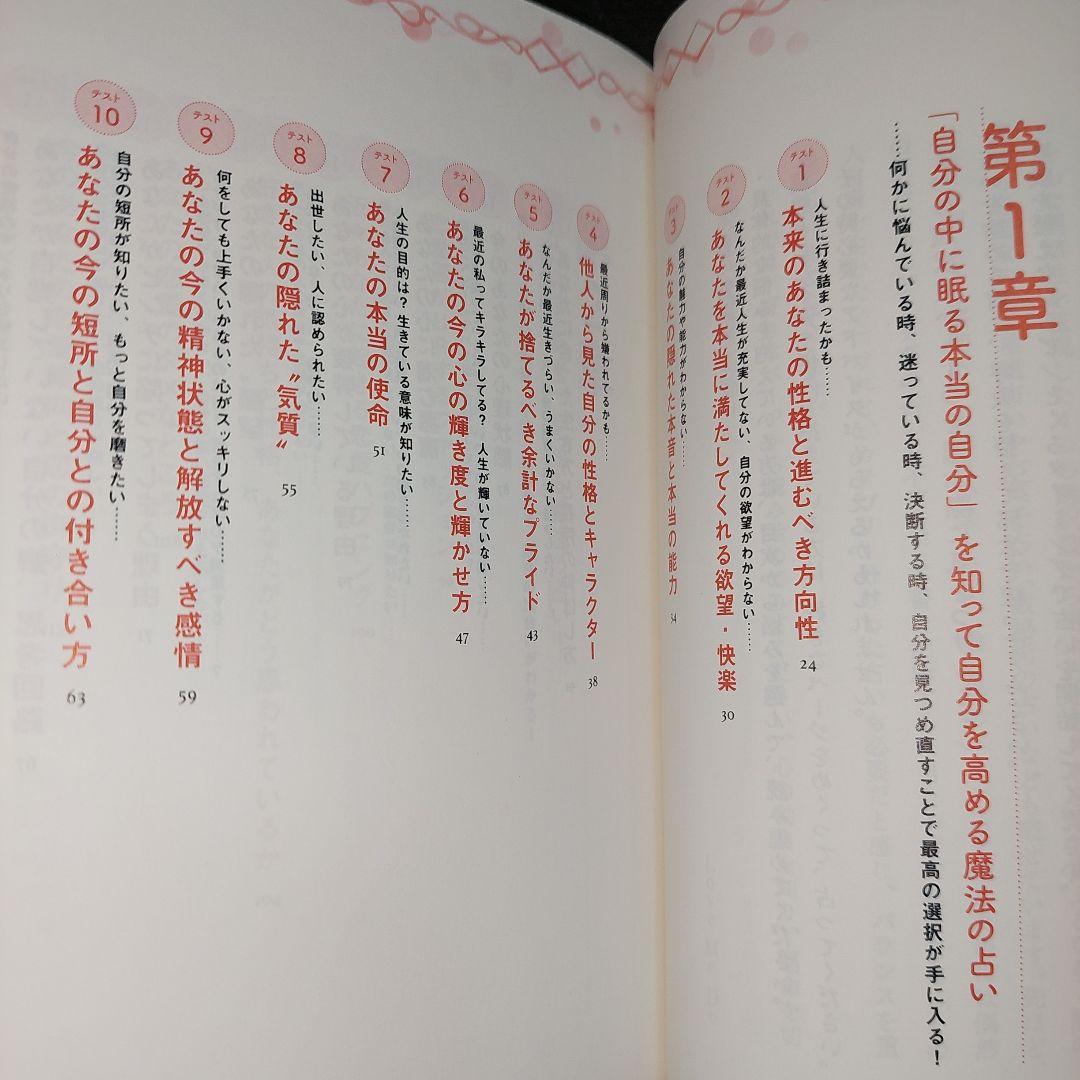 第1章
「自分の中に眠る本当の自分」を知って自分を高める魔法の占い
……何かに悩んでいる時、迷っている時、決断する時、自分を見つめ直すことで最高の選択が手に入る！
テスト
1
人生に行き詰まったかも……
本来のあなたの性格と進むべき方向性
24
テスト
2
なんだか最近人生が充実してない、自分の欲望がわからない……
あなたを本当に満たしてくれる欲望・快楽
30
テスト
3
自分の魅力や能力がわからない……
あなたの隠れた本音と本当の能力
34
テスト
4
最近周りから嫌われてるかも……
他人から見た自分の性格とキャラクター
38
テスト
5
なんだか最近生きづらい、うまくいかない……
あなたが捨てるべき余計なプライド
43
テスト
6
最近の私ってキラキラしてる？　人生が輝いていない……
あなたの今の心の輝き度と輝かせ方
47
テスト
7
人生の目的は？生きている意味が知りたい……
あなたの本当の使命
51
テスト
8
出世したい、人に認められたい……
あなたの隠れた〝気質〟
55
テスト
9
何をしても上手くいかない、心がスッキリしない……
あなたの今の精神状態と解放すべき感情
59
テスト
10
自分の短所が知りたい、もっと自分を磨きたい……
あなたの今の短所と自分との付き合い方
63